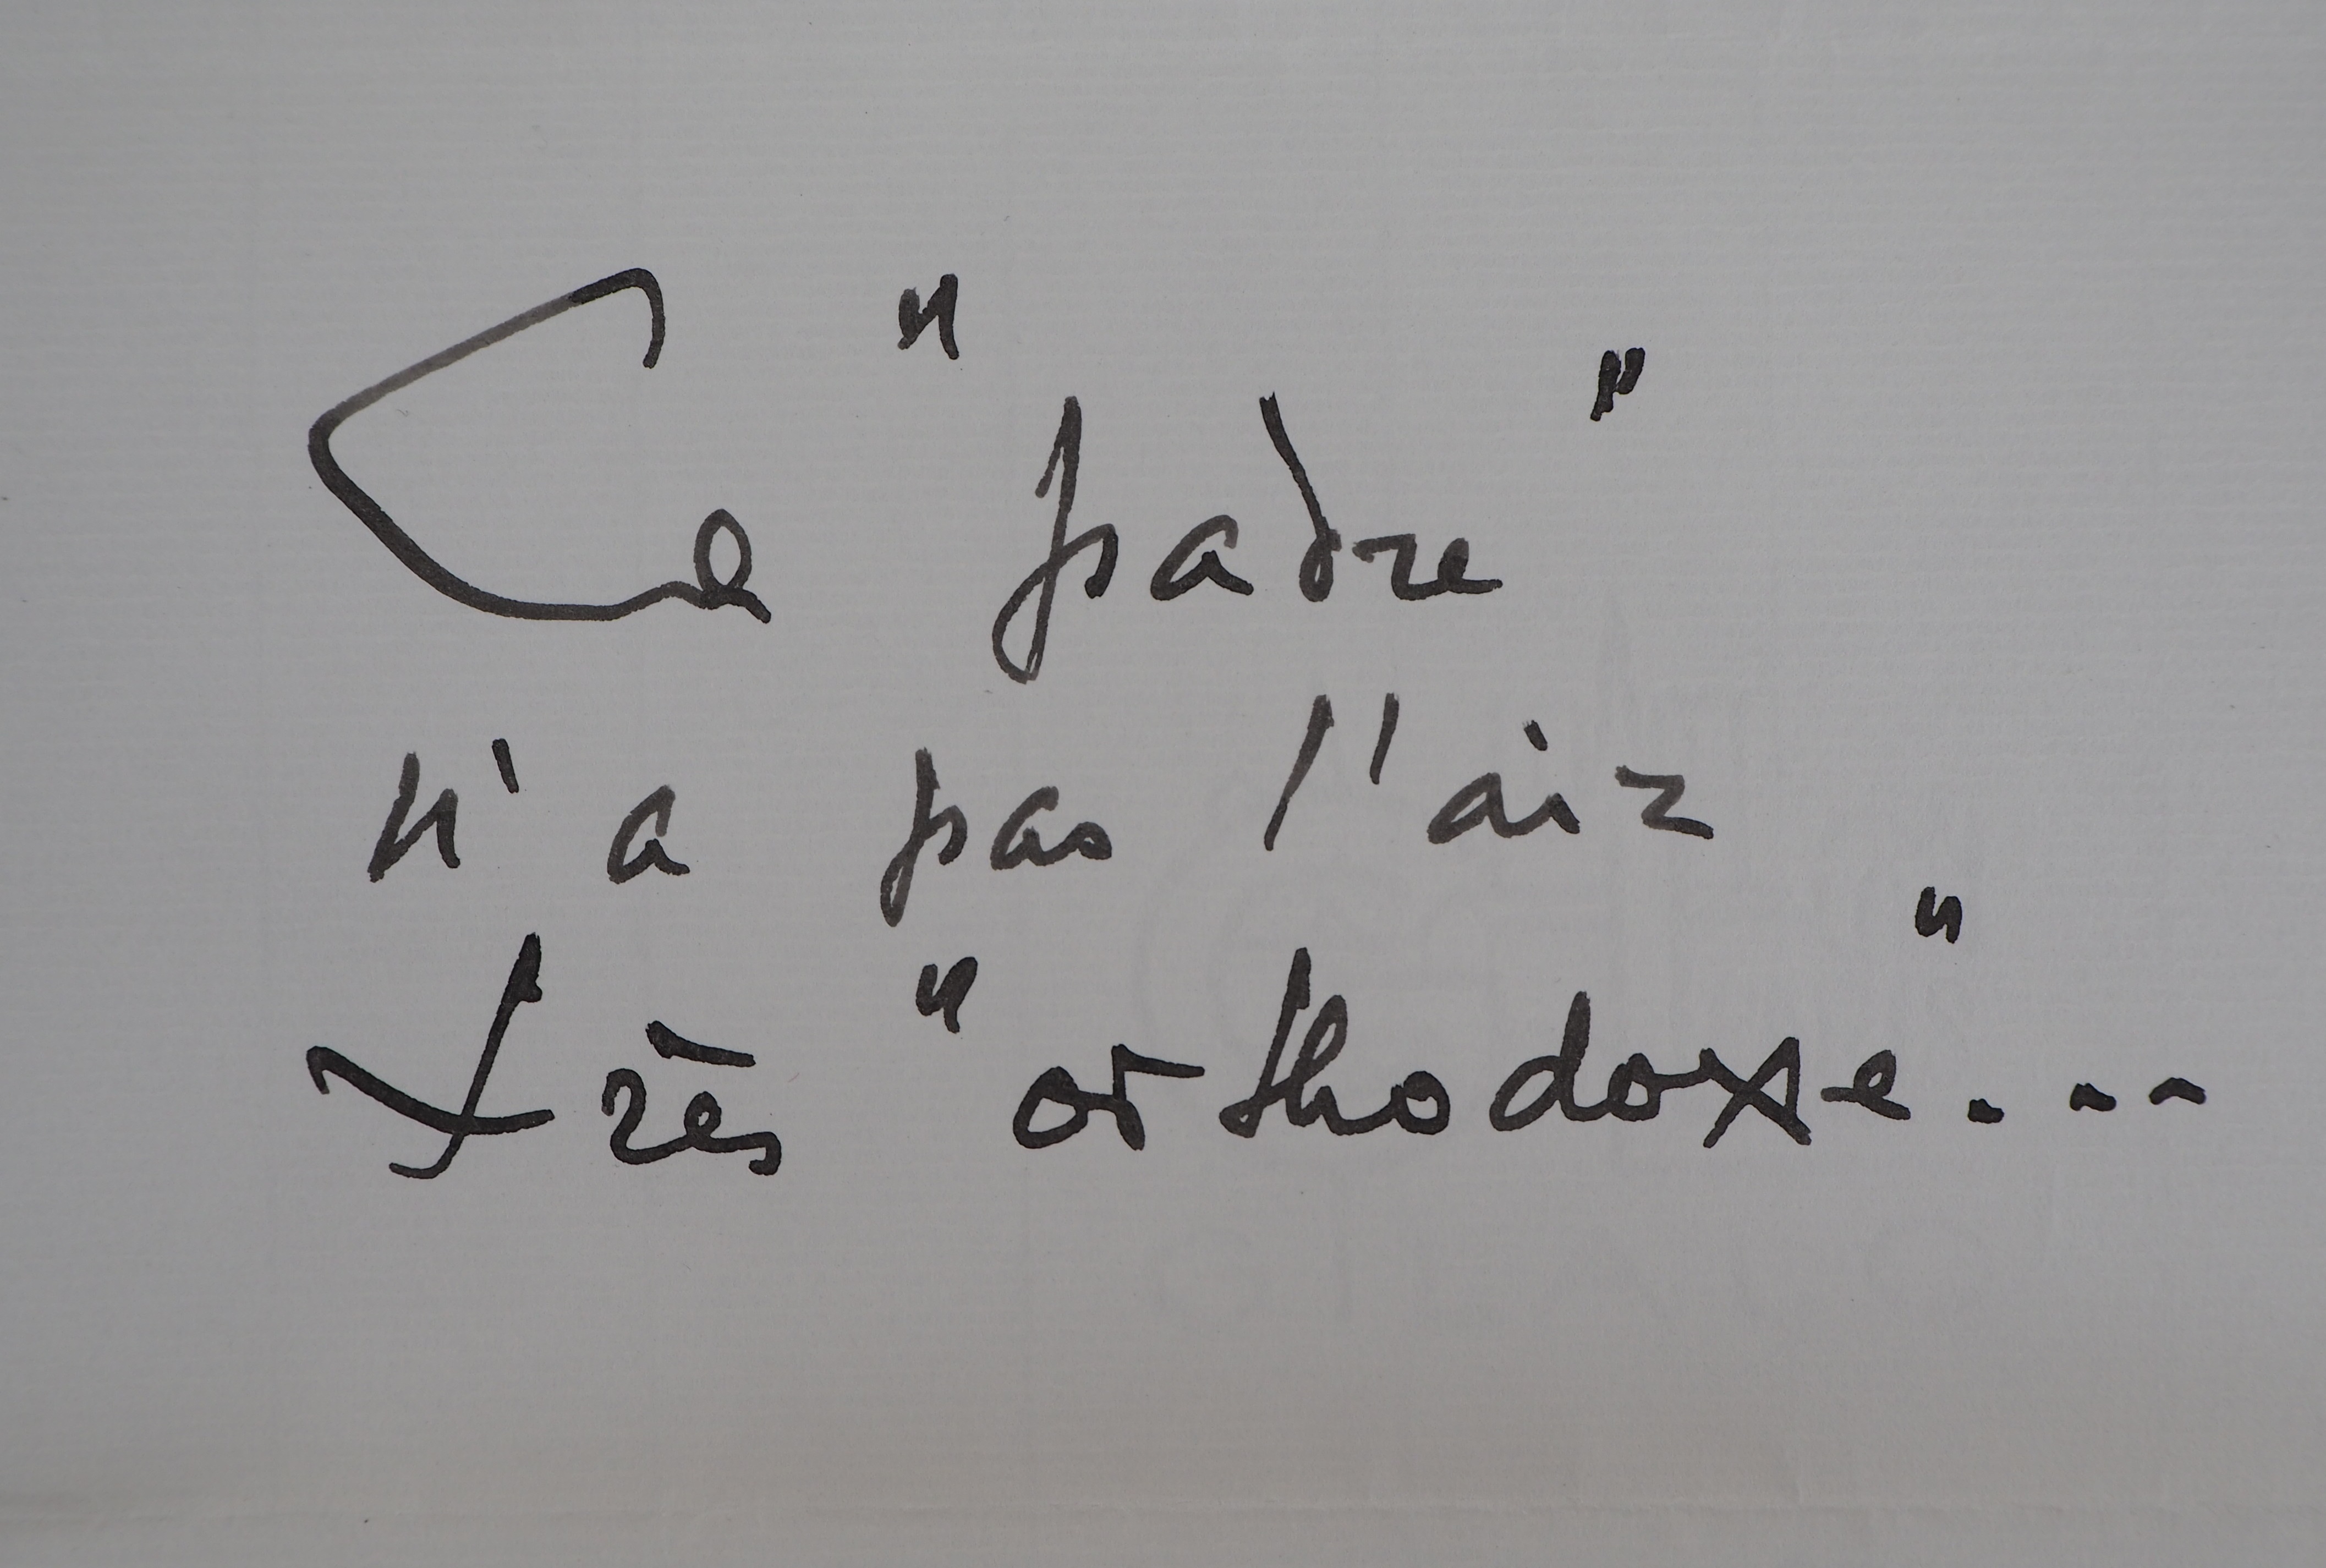 Ce "padre"
n'a pas l'air
très "orthodoxe"...